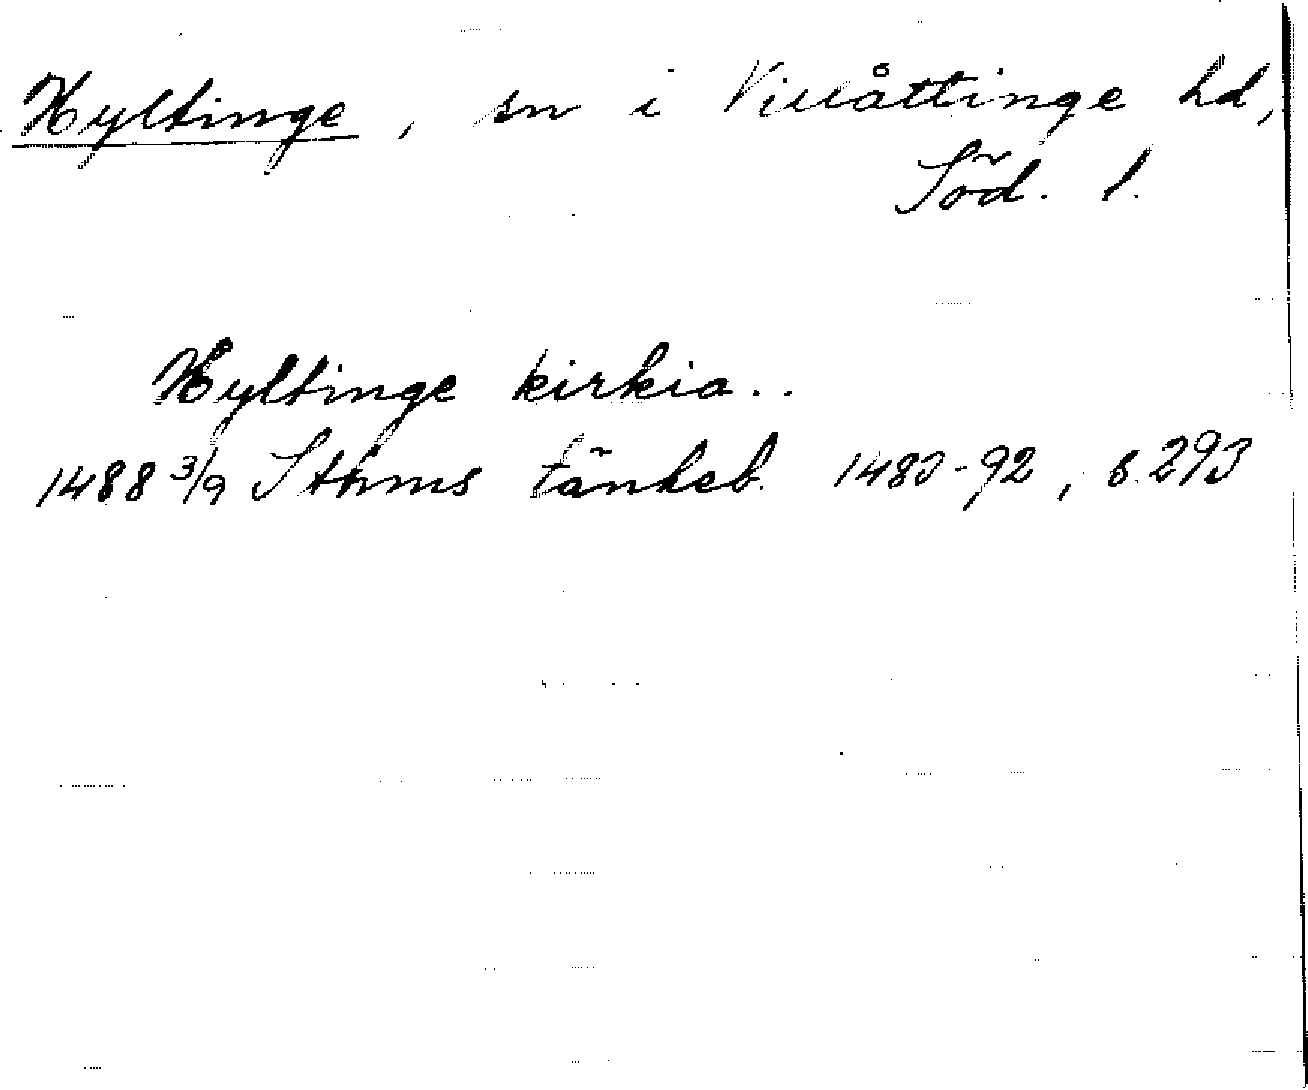 Hyltinge, sn i Villåttinge hd,
Söd. l.
Hyltinge kirkia..
1488 3/9 Sthms tänkeb. 1483-92, s. 293